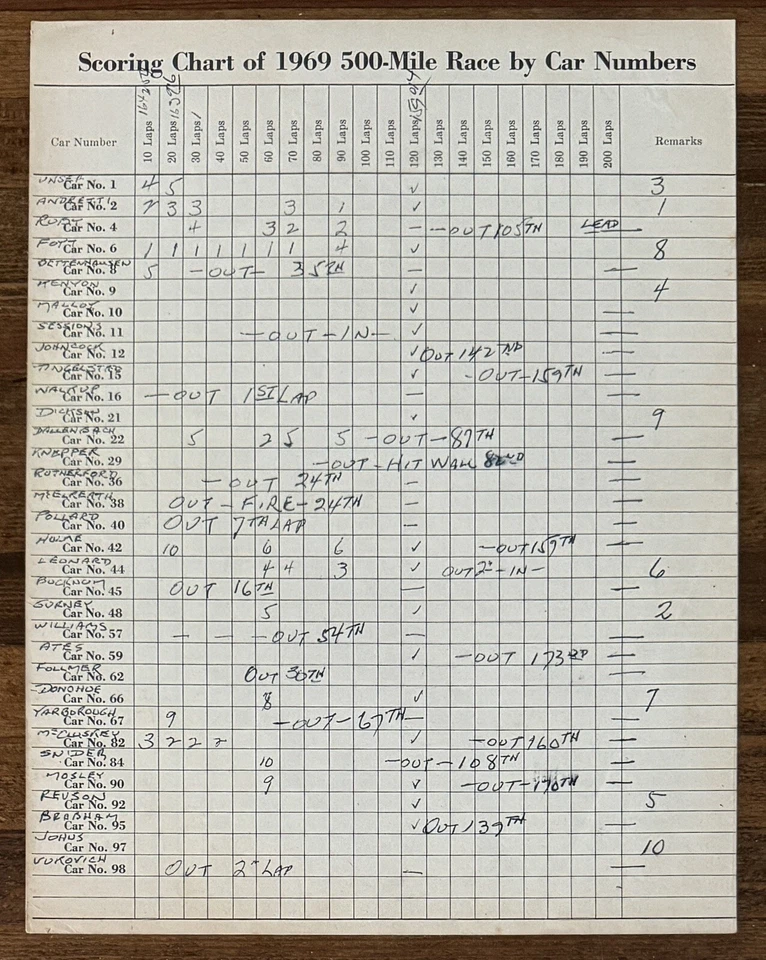 Scoring Chart of 1969 500-Mile Race by Car Numbers
Car Number 10 Laps 20 Laps 30 Laps 40 Laps 50 Laps 60 Laps 70 Laps 80 Laps 90 Laps 100 Laps 110 Laps 120 Laps 130 Laps 140 Laps 150 Laps 160 Laps 170 Laps 180 Laps 190 Laps 200 Laps Remarks
UNSER
Car No. 1 4 5 ✓ 3
ANDRETTI
Car No. 2 2 3 3 3 1 ✓ 1
RUBY
Car No. 4 4 3 2 2 — —OUT 105TH LEAD
FOYT
Car No. 6 1 1 1 1 1 1 1 4 ✓ 8
BETTENHAUSEN
Car No. 8 5 —OUT— 35TH — —
KENYON
Car No. 9 ✓ 4
MALLOY
Car No. 10 ✓ —
SESSIONS
Car No. 11 —OUT—IN— ✓ —
JOHNCOCK
Car No. 12 ✓ OUT 142ND —
TINGELSTAD
Car No. 15 ✓ —OUT—159TH —
WALKUP
Car No. 16 —OUT 1ST LAP — —
DICKSON
Car No. 21 ✓ 9
DALLENBACH
Car No. 22 5 2 5 5 —OUT—87TH —
KNEPPER
Car No. 29 —OUT—HIT WALL 82ND —
RUTHERFORD
Car No. 36 —OUT 24TH — —
McELREATH
Car No. 38 OUT—FIRE—24TH — —
POLLARD
Car No. 40 OUT 7TH LAP — —
HULME
Car No. 42 10 6 6 ✓ —OUT 159TH —
LEONARD
Car No. 44 4 4 3 ✓ OUT —IN— 6
BUCKNUM
Car No. 45 OUT 16TH — —
GURNEY
Car No. 48 5 ✓ 2
WILLIAMS
Car No. 57 — — —OUT 54TH — —
ATES
Car No. 59 ✓ —OUT 173RD —
FOLLMER
Car No. 62 OUT 30TH —
DONOHUE
Car No. 66 8 ✓ 7
YARBOROUGH
Car No. 67 9 —OUT—67TH — —
McCLUSKEY
Car No. 82 3 2 2 2 ✓ —OUT 160TH —
SNIDER
Car No. 84 10 —OUT—108TH —
MOSLEY
Car No. 90 9 ✓ —OUT—170TH —
REVSON
Car No. 92 ✓ 5
BRABHAM
Car No. 95 ✓ OUT 139TH —
JOHNS
Car No. 97 10
VUKOVICH
Car No. 98 OUT LAP — —